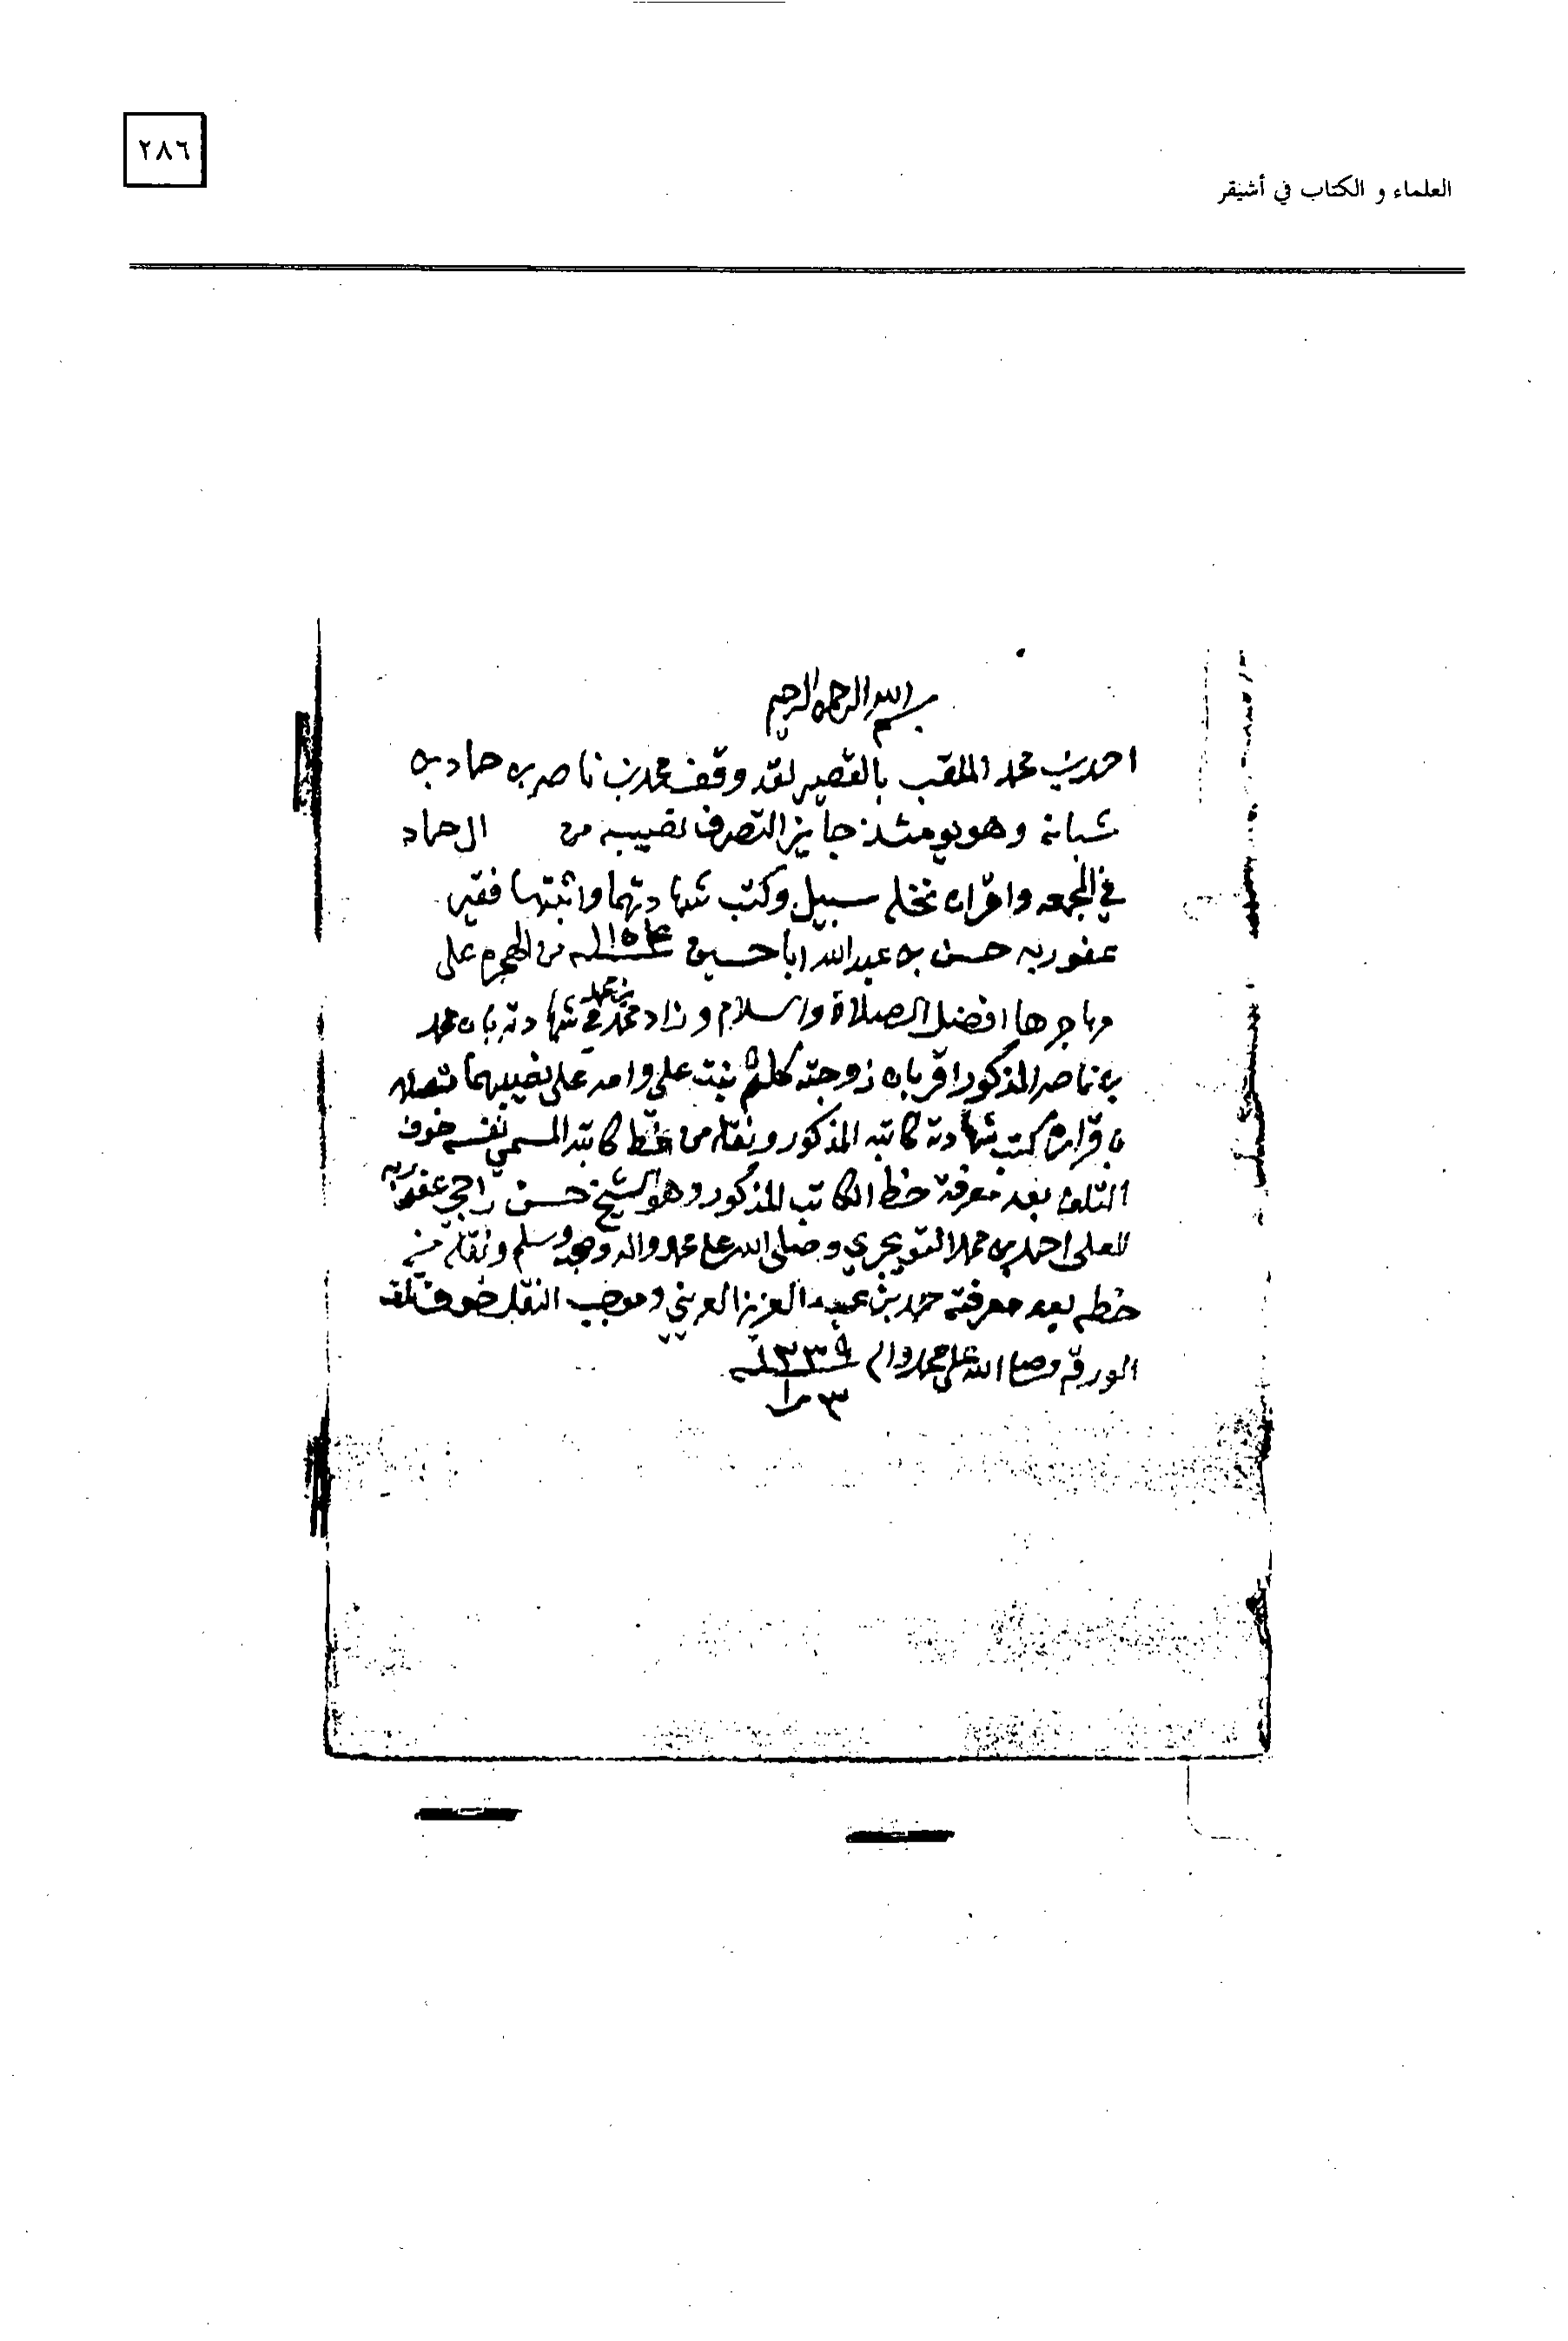 ٢٨٦
العلماء و الكتاب في أشيقر
بسم الله الرحمن الرحيم
احمد بن محمد الملقب بالقصير لقد وقف محمد بن ناصر بن حماد بن
شبانه وهو يومئذ جايز التصرف نصيبه من ال حماد
في المجمعه واقراه نخله سبيل وكتب شهادتهما واثبتها فقير
عفو ربه حسن بن عبدالله اباحسين ١١٥٤ من الهجره على
مهاجرها افضل الصلاة والسلام وزاد محمد بن حمد في شهادته بان محمد
بن ناصر المذكور اقر بان زوجته كلثم بنت علي واحد على نصيبهما
باقراره كتب شهادته كاتبه المذكور ونقله من خط كاتبه المسمى نفسه خوف
التلف بعد معرفة خط الكاتب المذكور وهو الشيخ حسن راجي عفو ربه
العلي احمد بن محمد التويجري وصلى الله على محمد واله وصحبه وسلم ونقله من
خطه بعد معرفته حمد بن عبد العزيز العريني وموجب النقل خوف تلف
الورقه وصلى الله على محمد واله ١٣٣٩
٣ را